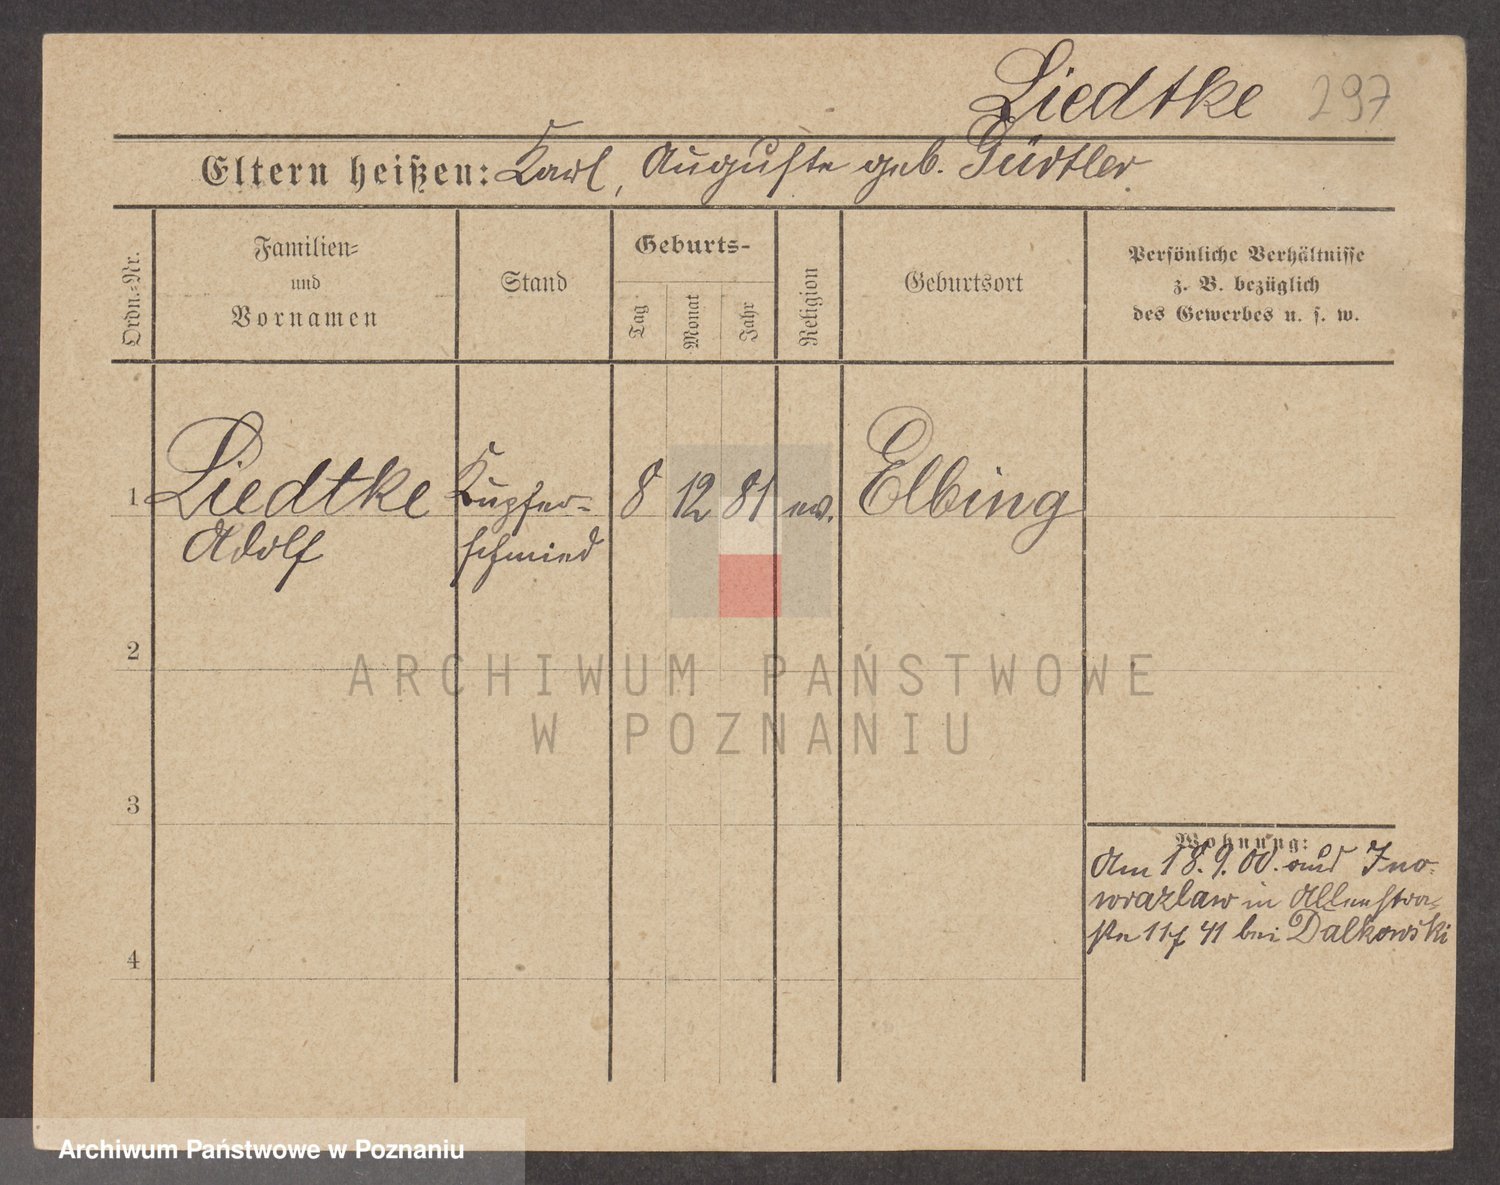 Liedtke 297
Eltern heißen: Karl, Auguste geb. Gürtler.
Ordn.-Nr.
Familien-
und
Vornamen
Stand
Geburts-
Tag
Monat
Jahr
Religion
Geburtsort
Persönliche Verhältnisse
z. B. bezüglich
des Gewerbes u. s. w.
1 Liedtke Kupfer- 8 12 81 ev. Elbing
Adolf schmied
2
3
4
Wohnung:
Am 18.9.00. aus Ino-
wrazlaw in
41 bei Dalkowski
ARCHIWUM PAŃSTWOWE
W POZNANIU
Archiwum Państwowe w Poznaniu